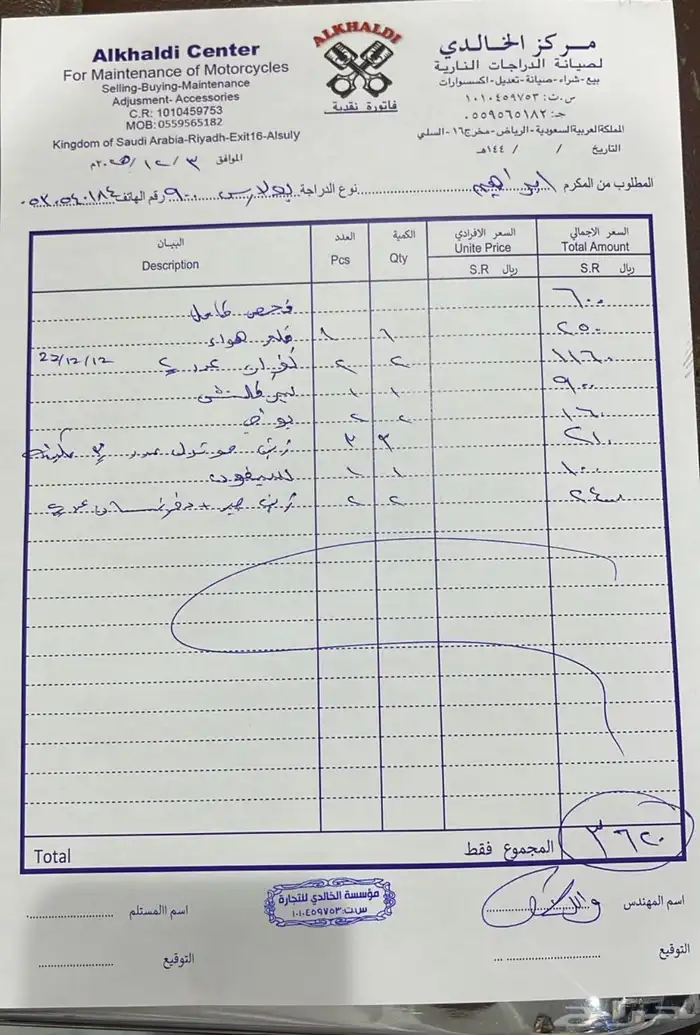 Alkhaldi Center
For Maintenance of Motorcycles
Selling-Buying-Maintenance
Adjusment- Accessories
C.R: 1010459753
MOB: 0559565182
Kingdom of Saudi Arabia-Riyadh-Exit16-Alsuly
ALKHALDI
فاتورة نقدية
مركز الخالدي
لصيانة الدراجات النارية
بيع-شراء-صيانة-تعديل-اكسسوارات
س.ت: ١٠١٠٤٥٩٧٥٣
جـ: ٠٥٥٩٥٦٥١٨٢
المملكة العربية السعودية-الرياض-مخرج ١٦-السلي
التاريخ / / ١٤٤هـ
الموافق ٣ / ١٢ / م
المطلوب من المكرم ابراهيم نوع الدراجة بولارس ٩٠٠ رقم الهاتف
البيان Description
العدد Pcs
الكمية Qty
السعر الافرادي Unite Price S.R ريال
السعر الاجمالي Total Amount S.R ريال
فحص كامل ٦٠٠
فلتر هواء ٢٥٠
كفرات عدد ٢ ٢ ٢ ١١٦٠ 22/12/12
١ ١ ٩٠٠
٢ ٢ ١٦٠
زيت موتول عدد ٣ مكينة ٣ ٣ ٢١٠
١ ١ ١٠٠
زيت جير + دفرنس عدد ٢ ٢ ٢ ٢٤٠
Total المجموع فقط ٣٦٢٠
اسم المهندس
اسم االمستلم
مؤسسة الخالدي للتجارة
س.ت: ١٠١٠٤٥٩٧٥٣
التوقيع
التوقيع